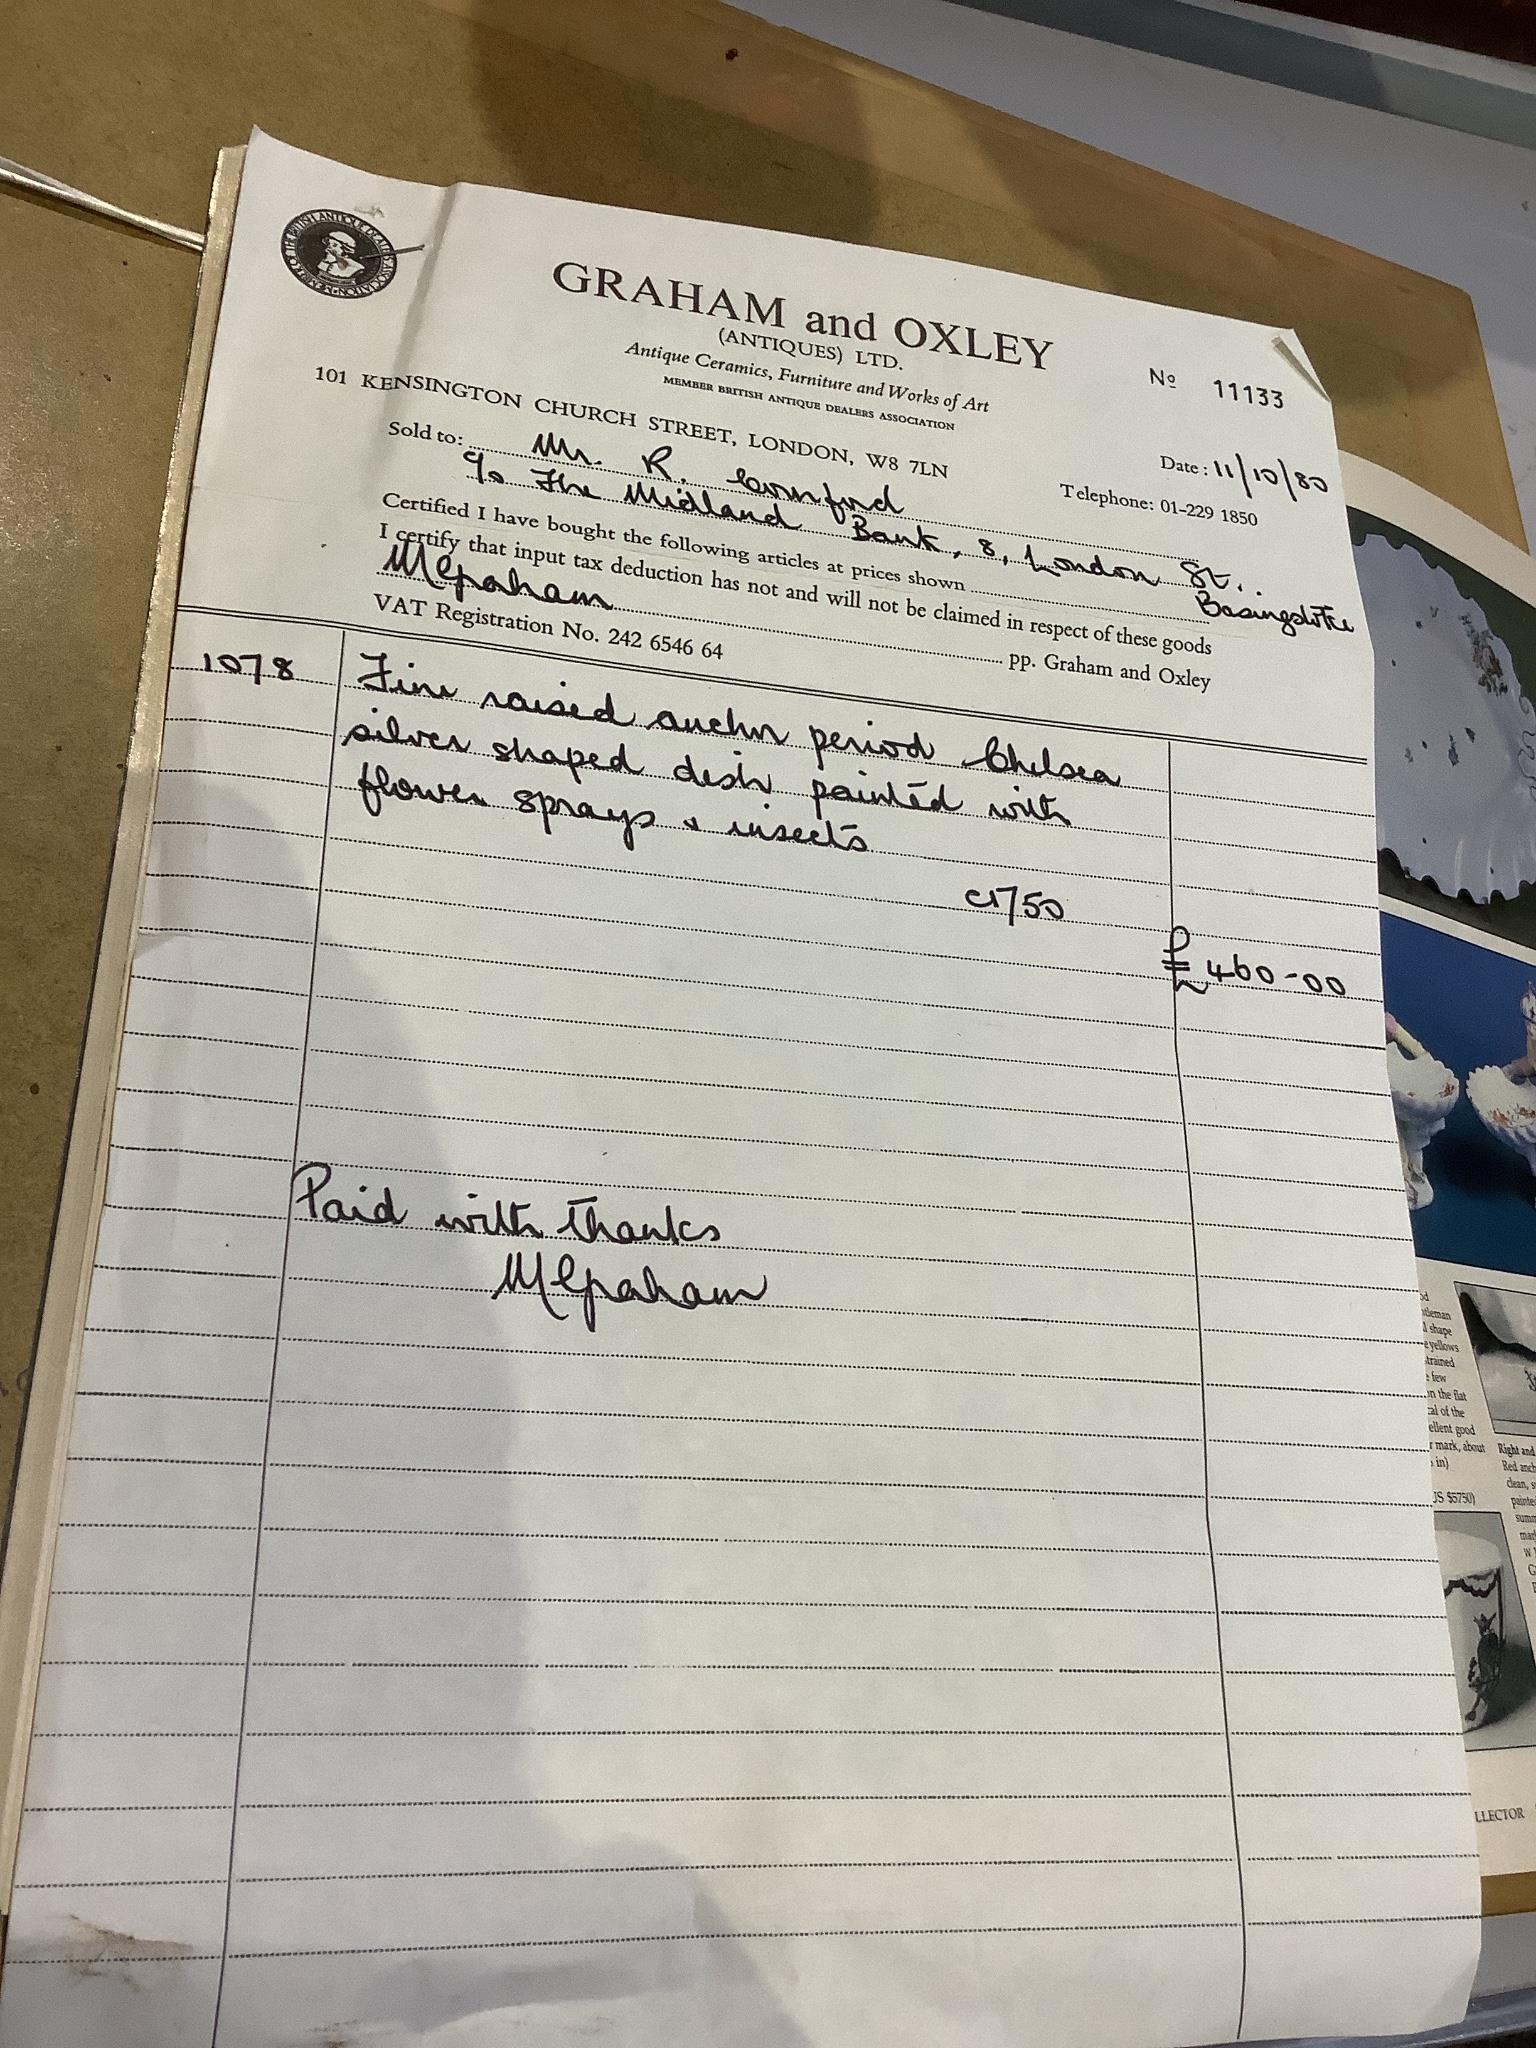 MEMBER OF THE BRITISH ANTIQUE DEALERS' ASSOCIATION
GRAHAM and OXLEY
(ANTIQUES) LTD.
Antique Ceramics, Furniture and Works of Art
MEMBER BRITISH ANTIQUE DEALERS ASSOCIATION
Nº 11133
101 KENSINGTON CHURCH STREET, LONDON, W8 7LN
Date: 11/10/80
Telephone: 01-229 1850
Sold to: Mr. R.
c/o The Midland Bank, 8, London St.
Basingstoke
Certified I have bought the following articles at prices shown
I certify that input tax deduction has not and will not be claimed in respect of these goods
MEGraham
pp. Graham and Oxley
VAT Registration No. 242 6546 64
1078 Fine raised anchor period Chelsea
silver shaped dish painted with
flower sprays & insects
c1750
£460-00
Paid with thanks
MEGraham
tleman
shape
yellows
trained
few
on the flat
cal of the
ellent good
mark, about
in)
US $5750)
Right and
Red anch
clean, s
painte
summ
mar
LLECTOR